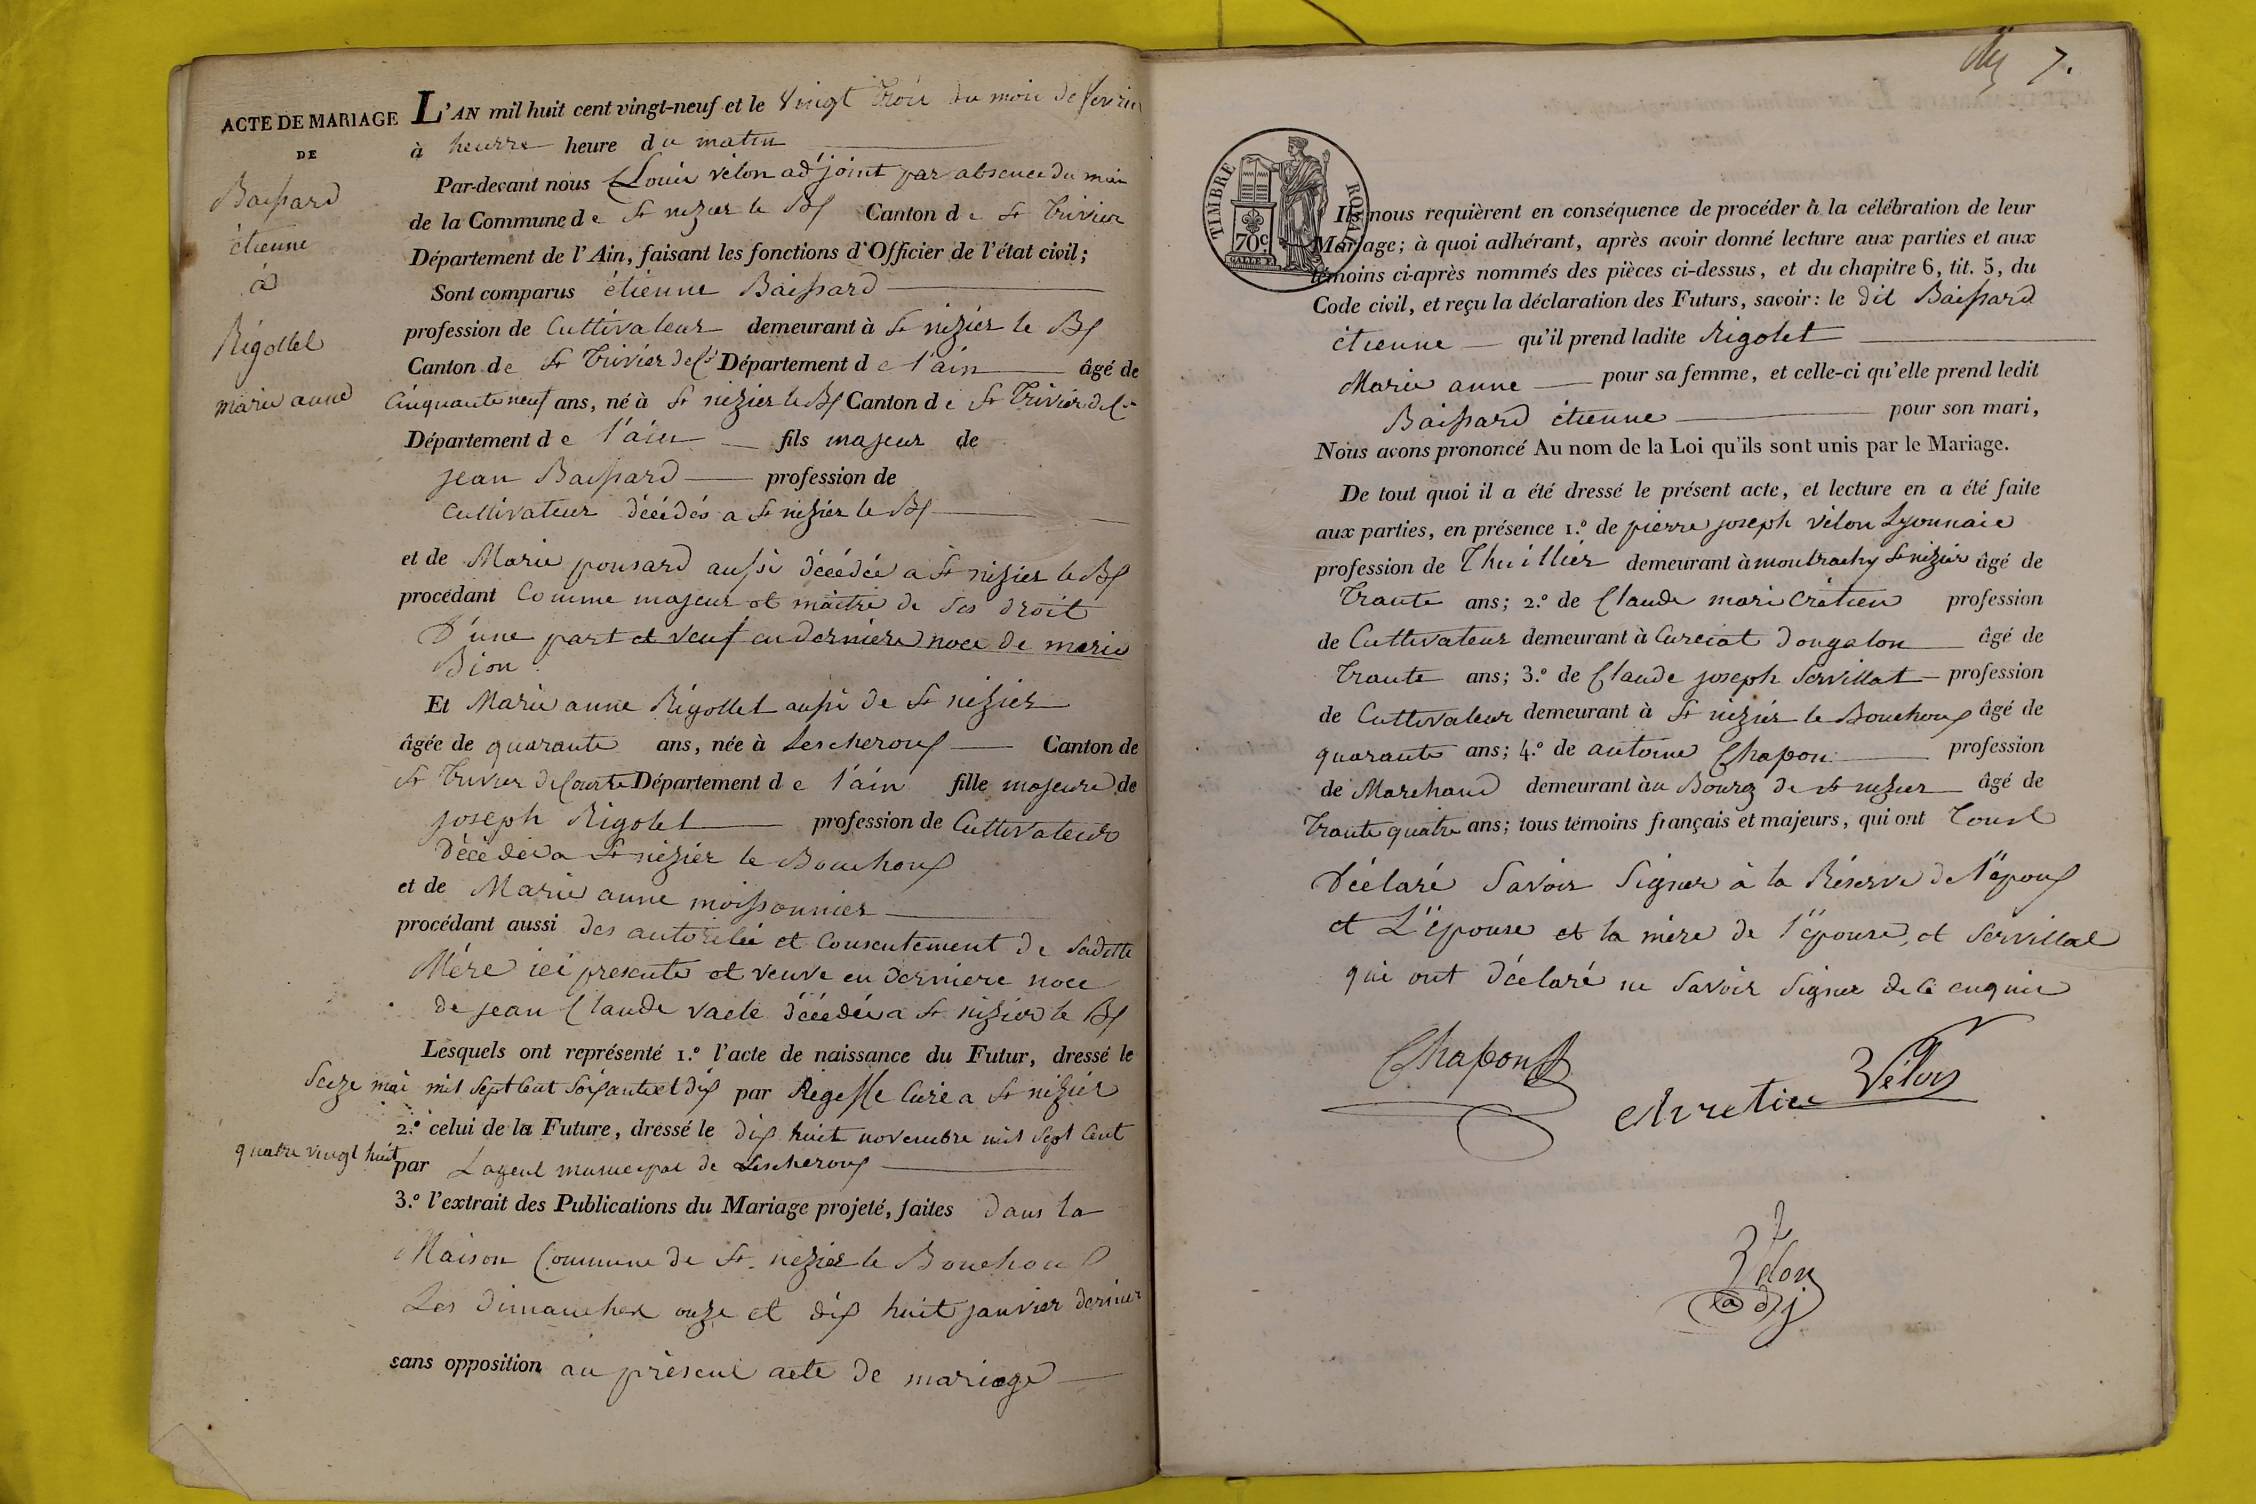 ACTE DE MARIAGE
DE
Baissard
étienne
à
Rigollet
marie anne
L'AN mil huit cent vingt-neuf et le vingt trois du mois de fevrier
à heurre heure du matin
Par-devant nous Louis vélon adjoint par absence du maire
de la Commune de St nizier le Bx Canton de St Trivier
Département de l'Ain, faisant les fonctions d'Officier de l'état civil;
Sont comparus étienne Baissard
profession de Cultivateur demeurant à St nizier le Bx
Canton de St Trivier de Cs Département de l'ain âgé de
Cinquante neuf ans, né à St nizier le Bx Canton de St Trivier de Cs
Département de l'ain fils majeur de
jean Baissard profession de
Cultivateur décédés a St nizier le Bx
et de Marie ponsard aussi décédée a St nizier le Bx
procédant Comme majeur et maitre de ses droit
D'une part et veuf en derniere noce de marie
Bion
Et Marie anne Rigollet aussi de St nizier
âgée de quarante ans, née à Lescheroux Canton de
St Trivier de Courte Département de l'ain fille majeure de
joseph Rigolet profession de Cultivateur
Décédé a St nizier le Bouchoux
et de Marie anne moissonnier
procédant aussi des autorité et Consentement de Saditte
Mére ici presente et veuve en derniere noce
de jean Claude vacle décédé a St nizier le Bx
Lesquels ont représenté 1.º l'acte de naissance du Futur, dressé le
Seize mai mil sept Cent Soixante et dix par Regeffe Curé a St nizier
2.º celui de la Future, dressé le dix huit novembre mil sept Cent
quatre vingt huit par L'agent municipal de Lescheroux
3.º l'extrait des Publications du Mariage projeté, faites dans la
Maison Commune de St. nizier le Bouchoux
Les dimanches onze et dix huit janvier dernier
sans opposition au présent acte de mariage
7.
TIMBRE ROYAL
70c.
Ils nous requièrent en conséquence de procéder à la célébration de leur
Mariage; à quoi adhérant, après avoir donné lecture aux parties et aux
témoins ci-après nommés des pièces ci-dessus, et du chapitre 6, tit. 5, du
Code civil, et reçu la déclaration des Futurs, savoir: le dit Baissard
étienne qu'il prend ladite Rigolet
Marie anne pour sa femme, et celle-ci qu'elle prend ledit
Baissard étienne pour son mari,
Nous avons prononcé Au nom de la Loi qu'ils sont unis par le Mariage.
De tout quoi il a été dressé le présent acte, et lecture en a été faite
aux parties, en présence 1.º de pierre joseph vélon Lyonnais
profession de Thuillier demeurant à montrachy St nizier âgé de
Trante ans; 2.º de Claude mari Crétien profession
de Cultivateur demeurant à Curciat dongalon âgé de
Trante ans; 3.º de Claude joseph Servillat profession
de Cultivateur demeurant à St nizier le Bouchoux âgé de
quarante ans; 4.º de antoine Chapon profession
de Marchand demeurant àu Bourg de St nizier âgé de
Trante quatre ans; tous témoins français et majeurs, qui ont Tous
Déclaré Savoir Signer à la Réserve de l'époux
et L'épouse et la mére de l'épouse, et Servillat
qui ont déclaré ne Savoir Signer de ce enquis
Chapon
chretien Vélon
Vélon
adj